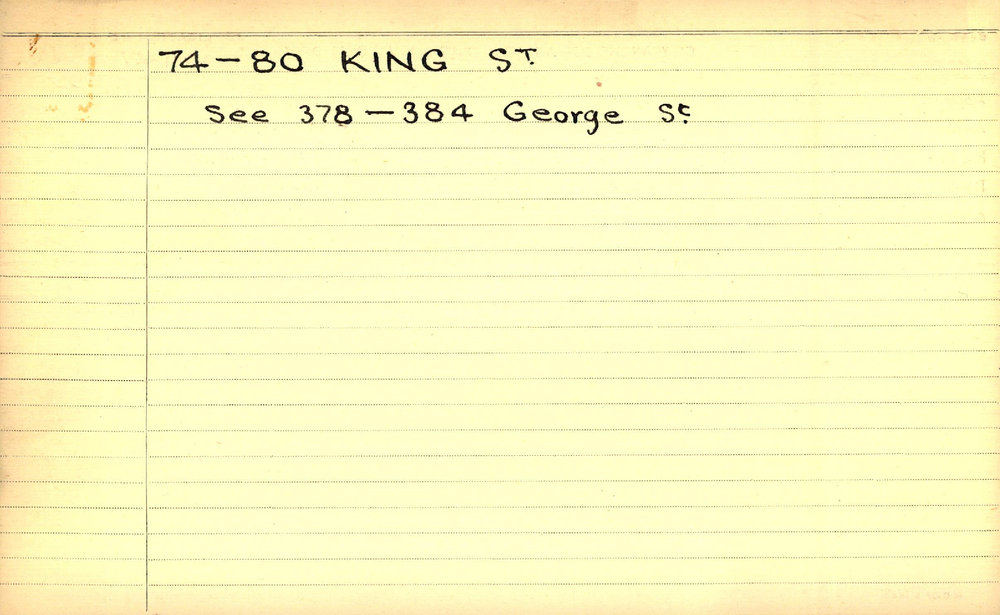 74-80 KING ST.
See 378-384 George St